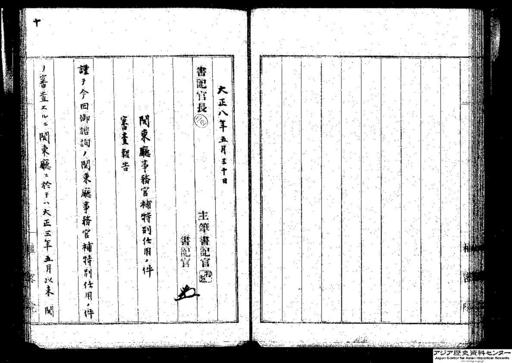 十
大正八年五月三十日
書記官長
主筆書記官
書記官
関東廳事務官補特別任用ノ件
審査報告
謹テ今回御諮詢ノ関東廳事務官補特別任用ノ件
ノ審査スルニ関東廳ニ於テハ大正三年五月以来関
アジア歴史資料センター
Japan Center for Asian Historical Records